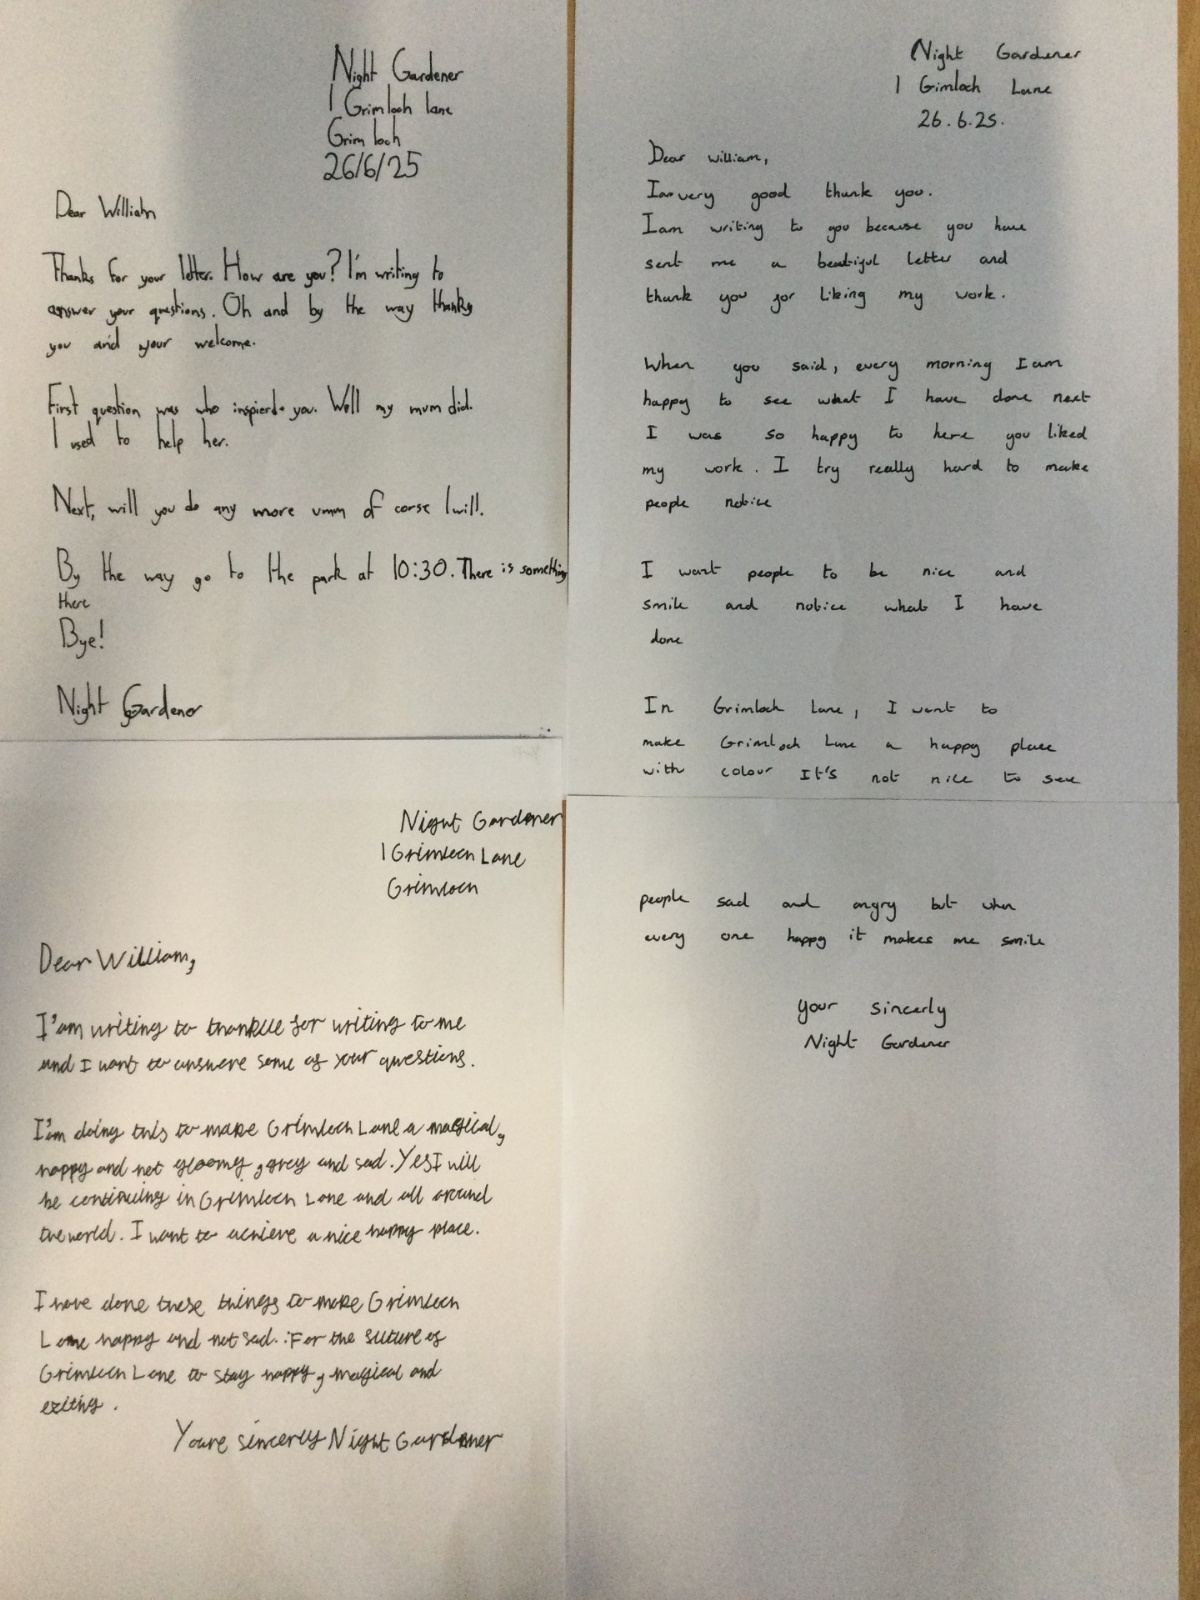 Night Gardener
1 Grimloch lane
Grim loch
26/6/25
Dear William
Thanks for your letter. How are you? I'm writing to
answer your questions. Oh and by the way thanks
you and your welcome.
First question was who inspierd you. Well my mum did.
I used to help her.
Next, will you do any more umm of corse I will.
By the way go to the park at 10:30. There is something
there
Bye!
Night Gardener
Night Gardener
1 Gimloch Lane
26.6.25.
Dear william,
I am very good thank you.
I am writing to you because you have
sent me a beatiful letter and
thank you for liking my work.
When you said, every morning I am
happy to see what I have done next
I was so happy to here you liked
my work. I try really hard to make
people notice
I want people to be nice and
smile and notice what I have
done
In Grimloch Lane, I want to
make Grimloch Lane a happy place
with colour It's not nice to see
people sad and angry but when
every one happy it makes me smile
your sincerly
Night Gardener
Night Gardener
1 Grimloch Lane
Grimloch
Dear William,
I'am writing to for writing to me
and I want to answere some of your questions.
I'm doing this to make Grimloch Lane a magical,
happy and not gloomy, grey and sad. Yes I will
be continuing in Grimloch Lane and all around
the world. I want to achieve a nice happy place.
I have done these things to make Grimloch
Lane happy and not sad. For the future of
Grimloch Lane to stay happy, magical and
exiting.
Youre sincerly Night Gardener